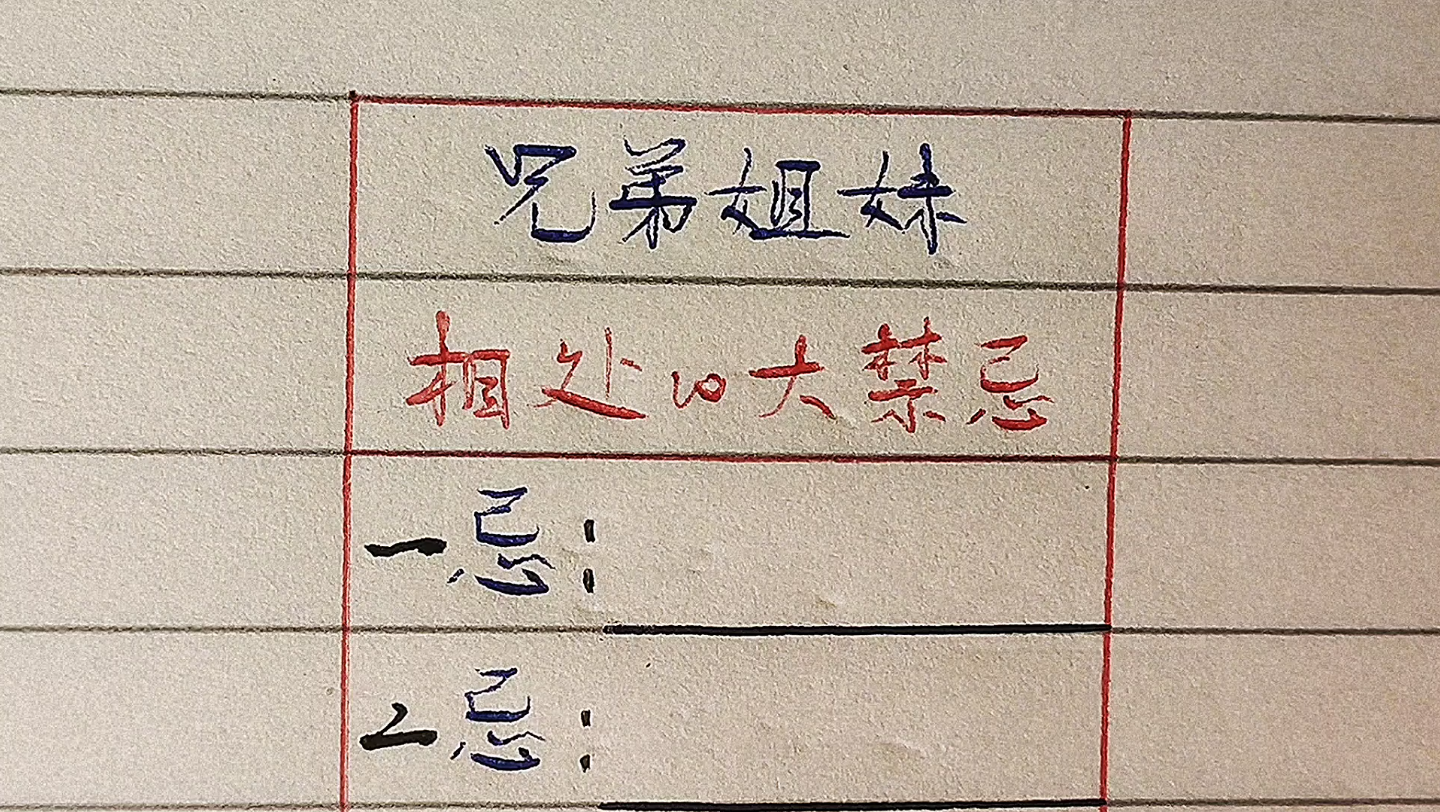 兄弟姐妹
相处10大禁忌
一忌：
二忌：